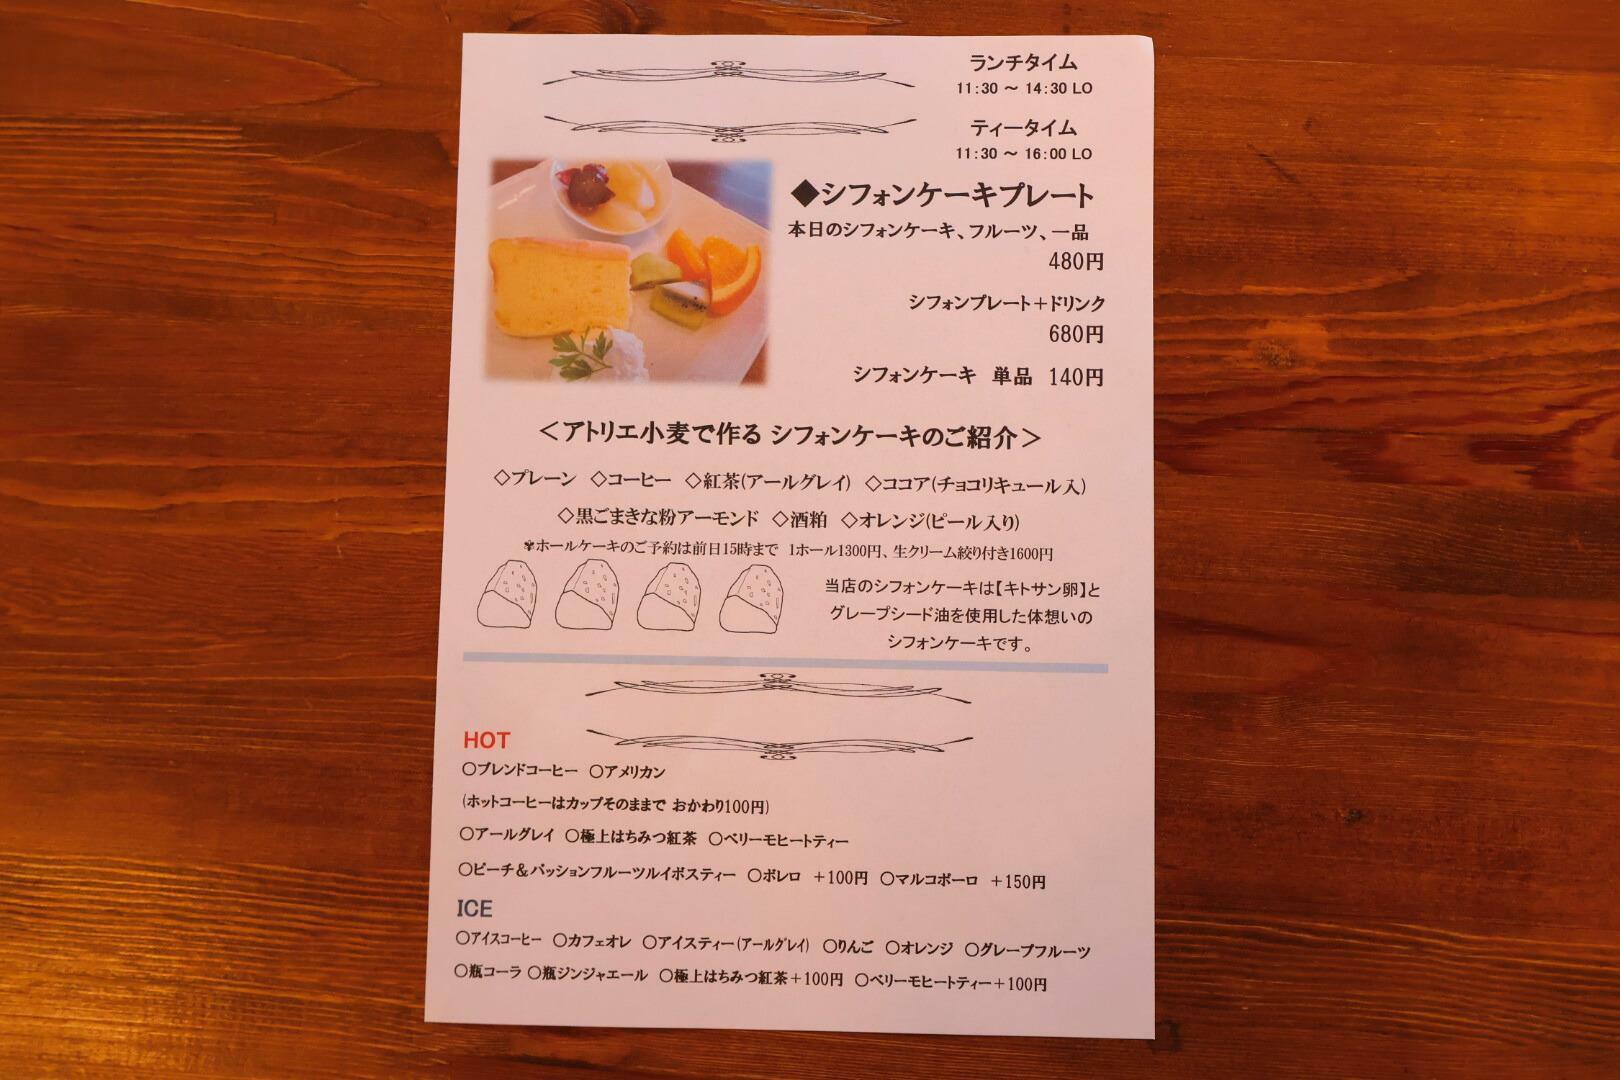 ランチタイム
11:30 ～ 14:30 LO
ティータイム
11:30 ～ 16:00 LO
◆シフォンケーキプレート
本日のシフォンケーキ、フルーツ、一品
480円
シフォンプレート＋ドリンク
680円
シフォンケーキ 単品 140円
＜アトリエ小麦で作る シフォンケーキのご紹介＞
◇プレーン ◇コーヒー ◇紅茶(アールグレイ) ◇ココア(チョコリキュール入)
◇黒ごまきな粉アーモンド ◇酒粕 ◇オレンジ(ピール入り)
✾ホールケーキのご予約は前日15時まで 1ホール1300円、生クリーム絞り付き1600円
当店のシフォンケーキは【キトサン卵】と
グレープシード油を使用した体想いの
シフォンケーキです。
HOT
○ブレンドコーヒー ○アメリカン
(ホットコーヒーはカップそのままで おかわり100円)
○アールグレイ ○極上はちみつ紅茶 ○ベリーモヒートティー
○ピーチ＆パッションフルーツルイボスティー ○ボレロ ＋100円 ○マルコポーロ ＋150円
ICE
○アイスコーヒー ○カフェオレ ○アイスティー(アールグレイ) ○りんご ○オレンジ ○グレープフルーツ
○瓶コーラ ○瓶ジンジャエール ○極上はちみつ紅茶＋100円 ○ベリーモヒートティー＋100円